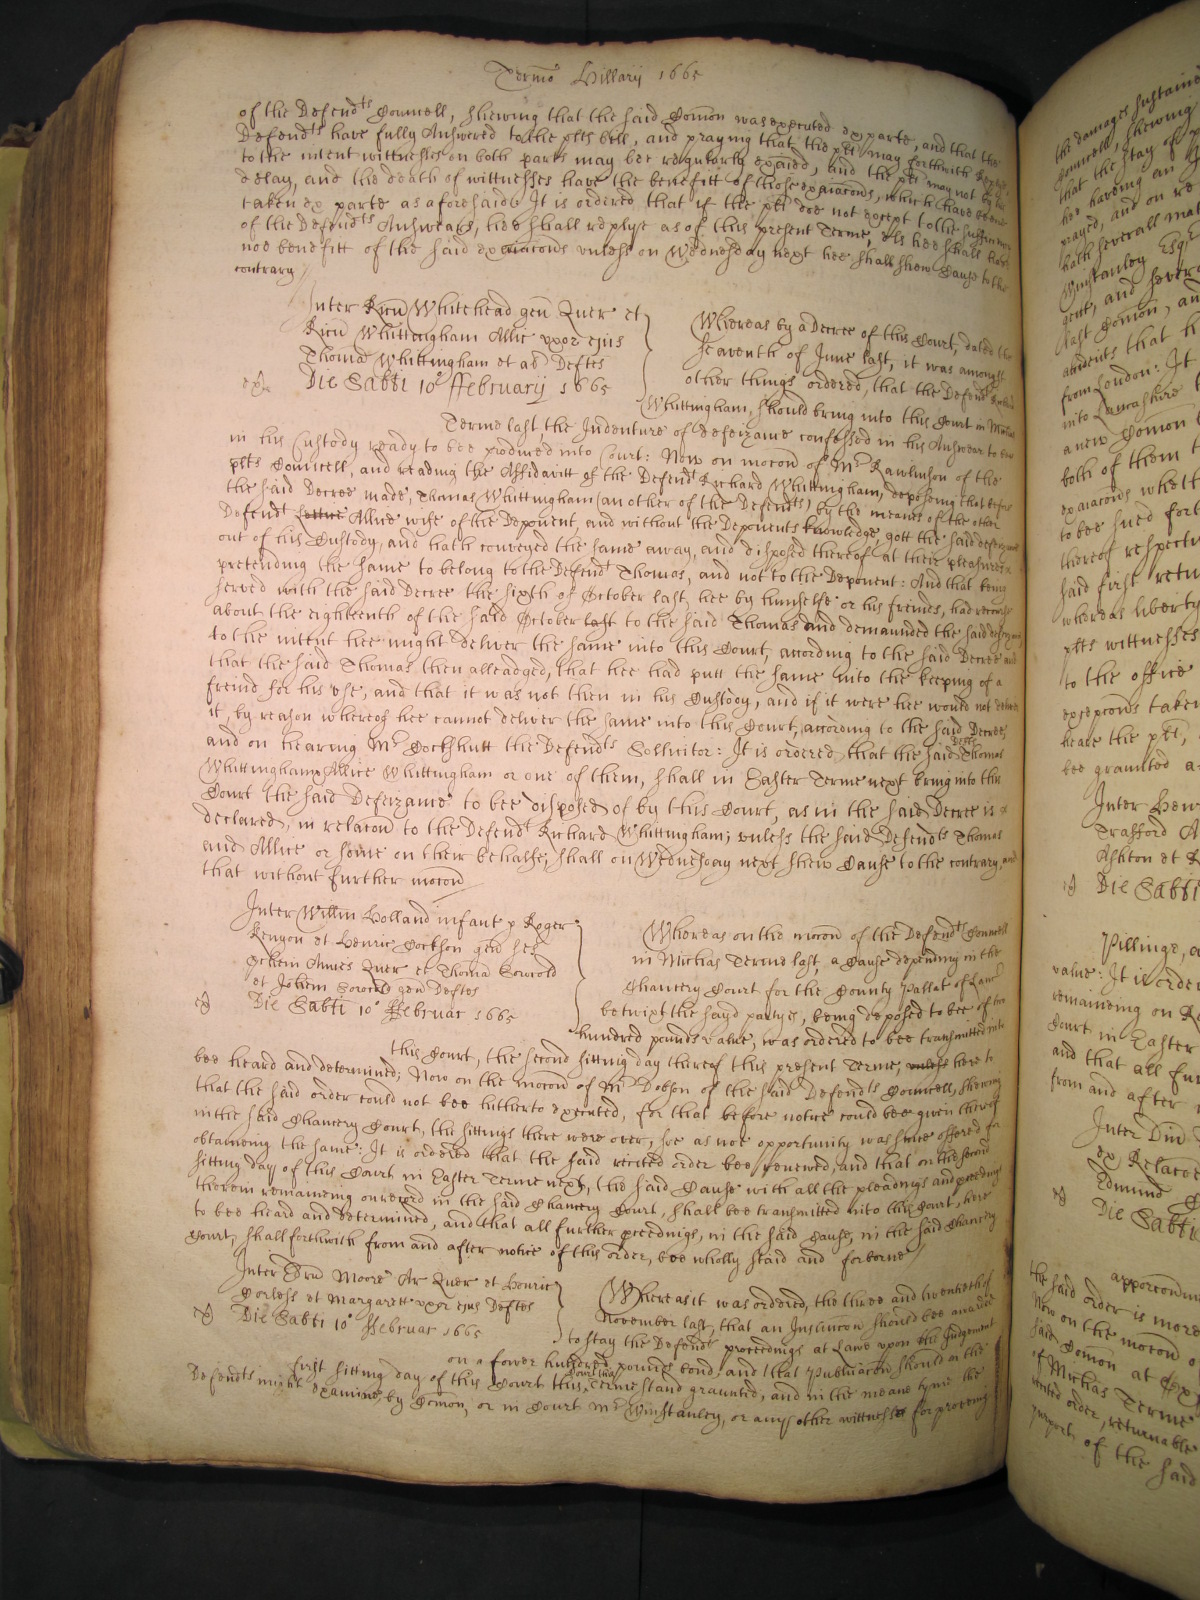 Termo Hillarij 1665
of the Defend^ts Councell, shewing that the said Comon was executed ex parte, and that the
Defend^ts have fully Answered to the plts bill, and praying that the plt may forthwith
to the intent wittnesses on both parts may bee regularly exaied, and the plt may not by his
delay, and the death of wittnesses have the benefitt of those exaiacons, which have beene
taken ex parte as aforesaid: It is ordered that if the plt doe not except to the
of the Defend^ts Answears, hee shall replye as of this present Terme, els hee shall have
noe benefitt of the said exaiacons unless on Wednesday next hee shall shew Cause to the
contrary
Inter Ricu Whitehead gen Quer et
Ricu Whittingham Allic uxor ejus
Thoma Whittingham et al Deftes
Die Sabti 10° ffebruarij 1665
Whereas by a Decree of this Court, dated the
seaventh of June last, it was amongst
other things ordered, that the Defend^t
Whittingham, should bring into this Court in
Terme last, the Indenture of defeizance confessed in his Answear to bee
in his Custody ready to bee produced into Court: Now on mocon of M^r Rawlinson of the
plts Councell, and reading the Affidavitt of the Defend^t Richard Whittingham, deposeing that before
the said Decree made, Thomas Whittingham (an other of the Defend^ts) by the meanes of the other
Defend^t Allice wife of the Deponent, and without the Deponents knowledge, gott the said
out of his Custody, and hath conveyed the same away, and disposed thereof at their pleasures
pretending the same to belong to the Defend^t Thomas, and not to the Deponent: And that being
served with the said Decree the sixth of October last, hee by himselfe or his freinds, had
about the eighteenth of the said October last to the said Thomas and demaunded the said
to the intent hee might deliver the same into this Court, according to the said Decree and
that the said Thomas then alleadged, that hee had putt the same into the keeping of a
freind for his use, and that it was not then in his Custody, and if it were hee would not deliver
it, by reason whereof hee cannot deliver the same into this Court, according to the said Decree,
and on hearing M^r Cockshutt the Defend^ts Sollicitor: It is ordered that the said Thomas
Whittingham & Allice Whittingham or one of them, shall in Easter Terme next bring into this
Court the said Defeizance to bee disposed of by this Court, as in the said Decree is
declared, in relacon to the Defend^t Richard Whittingham; unless the said Defend^ts Thomas
and Allice or some on their behalfe, shall on Wednesday next shew Cause to the contrary, and
that without further mocon
Inter Willm Holland infant p Roger
Kenyon et Henric
et
Die Sabti 10° ffebruar 1665
Whereas on the mocon of the Defend^ts Councell
in Michas Terme last, a Cause depending in the
Chancery Court for the County Pallat of Lanc^r
betwixt the sayd partyes, being deposed to bee of
hundred pounds value, was ordered to bee transmitted into
this Court, the second sitting day thereof this present Terme, unless here to
bee heard and determined; Now on the mocon of M^r Dobson of the said Defend^ts Councell, shewing
that the said order could not bee hitherto executed, for that before notice could bee given thereof
in the said Chancery Court, the sittings there were over, soe as noe opportunity was since offered for
obtaineing the same: It is ordered that the said recited order bee renewed, and that on the second
sitting day of this Court in Easter Terme next, the said Cause with all the pleadings and pceedings
therein remaineing on record in the said Chancery Court, shall bee transmitted into this Court, here
to bee heard and determined, and that all further pceedings, in the said Cause, in the said Chancery
Court, shall forthwith from and after notice of this order, bee wholly staid and forborne
Inter Edru Moore Ar Quer et Henric
Corless et Margarett uxor ejus Deftes
Die Sabti 10° ffebruar 1665
Whereas it was ordered, the three and twentieth of
November last, that an Iniuncon should bee awarded
to stay the Defend^ts proceedings at Lawe upon the Judgement
on a fower hundred pounds bond, and that Publicacon should in the
first sitting day of this Court this Terme stand graunted, and in the meane tyme the
Defend^ts might examine, by Comon, or in Court M^r Winstanley, or any other wittnesses for proveing
the damages sustained
Councell, shewing
that the stay of
hee haveing an
prayed, and on
hath severall
Winstanley Esq^r
gent, and
last Comon, and
accidents that
from London: It
into Lancashire
a new Comon
both of them
exaiacons
to bee sued fort
thereof
said first
liberty
plts wittnesses
to the office
excepcons taken
heare the plt,
bee graunted
Inter Hen
Trafford
Ashton et
Die Sabti
Pillinge,
value: It is order
remaineing on
Court, in Easter
and that all fur
from and after
Inter
ex Relac
Edmund
Die Sabti
the said order is more
Now on the mocon
said Comon at
of Michas Terme
recited order, returnable
purport of the said